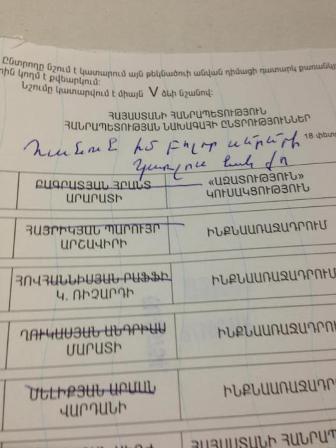 Ընտրողը նշում է կատարում այն թեկնածուի անվան դիմացի դատարկ քառանկյ
կողմ է քվեարկում:
Նշումը կատարվում է միայն V ձևի նշանով:
ՀԱՅԱՍՏԱՆԻ ՀԱՆՐԱՊԵՏՈՒԹՅՈՒՆ
ՀԱՆՐԱՊԵՏՈՒԹՅԱՆ ՆԱԽԱԳԱՀԻ ԸՆՏՐՈՒԹՅՈՒՆՆԵՐ
18 փետր
իմ բոլոր
ԲԱԳՐԱՏՅԱՆ ՀՐԱՆՏ ԱՐԱՐԱՏԻ
«ԱԶԱՏՈՒԹՅՈՒՆ» ԿՈՒՍԱԿՑՈՒԹՅՈՒՆ
ՀԱՅՐԻԿՅԱՆ ՊԱՐՈՒՅՐ ԱՐՇԱՎԻՐԻ
ԻՆՔՆԱԱՌԱՋԱԴՐՈՒՄ
ՀՈՎՀԱՆՆԻՍՅԱՆ ՐԱՖՖԻ Կ. ՌԻՉԱՐԴԻ
ԻՆՔՆԱԱՌԱՋԱԴՐՈՒՄ
ՂՈՒԿԱՍՅԱՆ ԱՆԴՐԻԱՍ ՄԱՐԱՏԻ
ԻՆՔՆԱԱՌԱՋԱԴՐՈՒՄ
ՄԵԼԻՔՅԱՆ ԱՐՄԱՆ ՎԱՐԴԱՆԻ
ԻՆՔՆԱԱՌԱՋԱԴՐՈՒՄ
ՀԱՅԱՍՏԱՆԻ ՀԱՆՐԱՊ